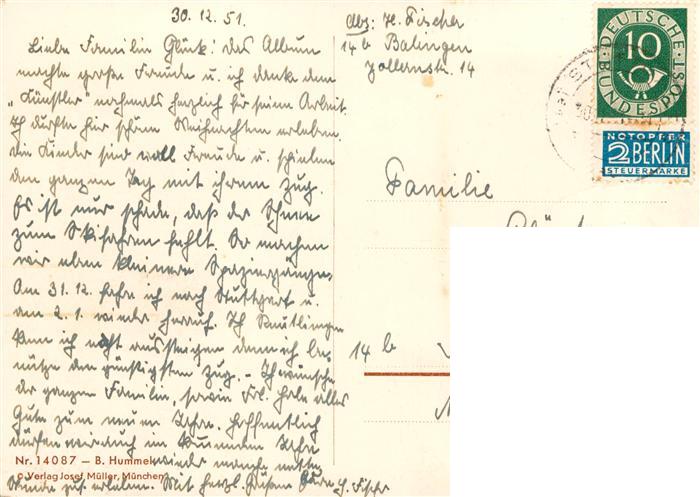 30.12.51.
Liebe Familie Glück! das Album
machte große Freude u. ich danke dem
„Künstler" nochmals herzlich für seine Arbeit.
Ich durfte hier schöne Weihnachten erleben,
die Kinder sind voll Freude u. spielen
den ganzen Tag mit ihrem Zug.
Es ist nur schade, daß der Schnee
zum Skifahren fehlt. So machen
wir eben kleinere Spaziergänge.
Am 31.12. fahre ich nach Stuttgart u.
am 2.1. wieder herauf. Ich Reutlingen
kann ich nicht aussteigen denn ich be-
nütze den günstigsten Zug. - Ich wünsche
der ganzen Familie, sowie Frl. Hole alles
Gute zum neuen Jahre. Hoffentlich
dürfen wir auch im kommenden Jahre
wieder manche nette
Stunde zus. erleben. Mit herzl. Grüßen H. Fischer
Nr. 14087 – B. Hummel
© Verlag Josef Müller, München
Abs: H. Fischer
14 b Balingen
Zollernstr. 14
DEUTSCHE BUNDESPOST
10
NOTOPFER
2 BERLIN
STEUERMARKE
Familie
14 b